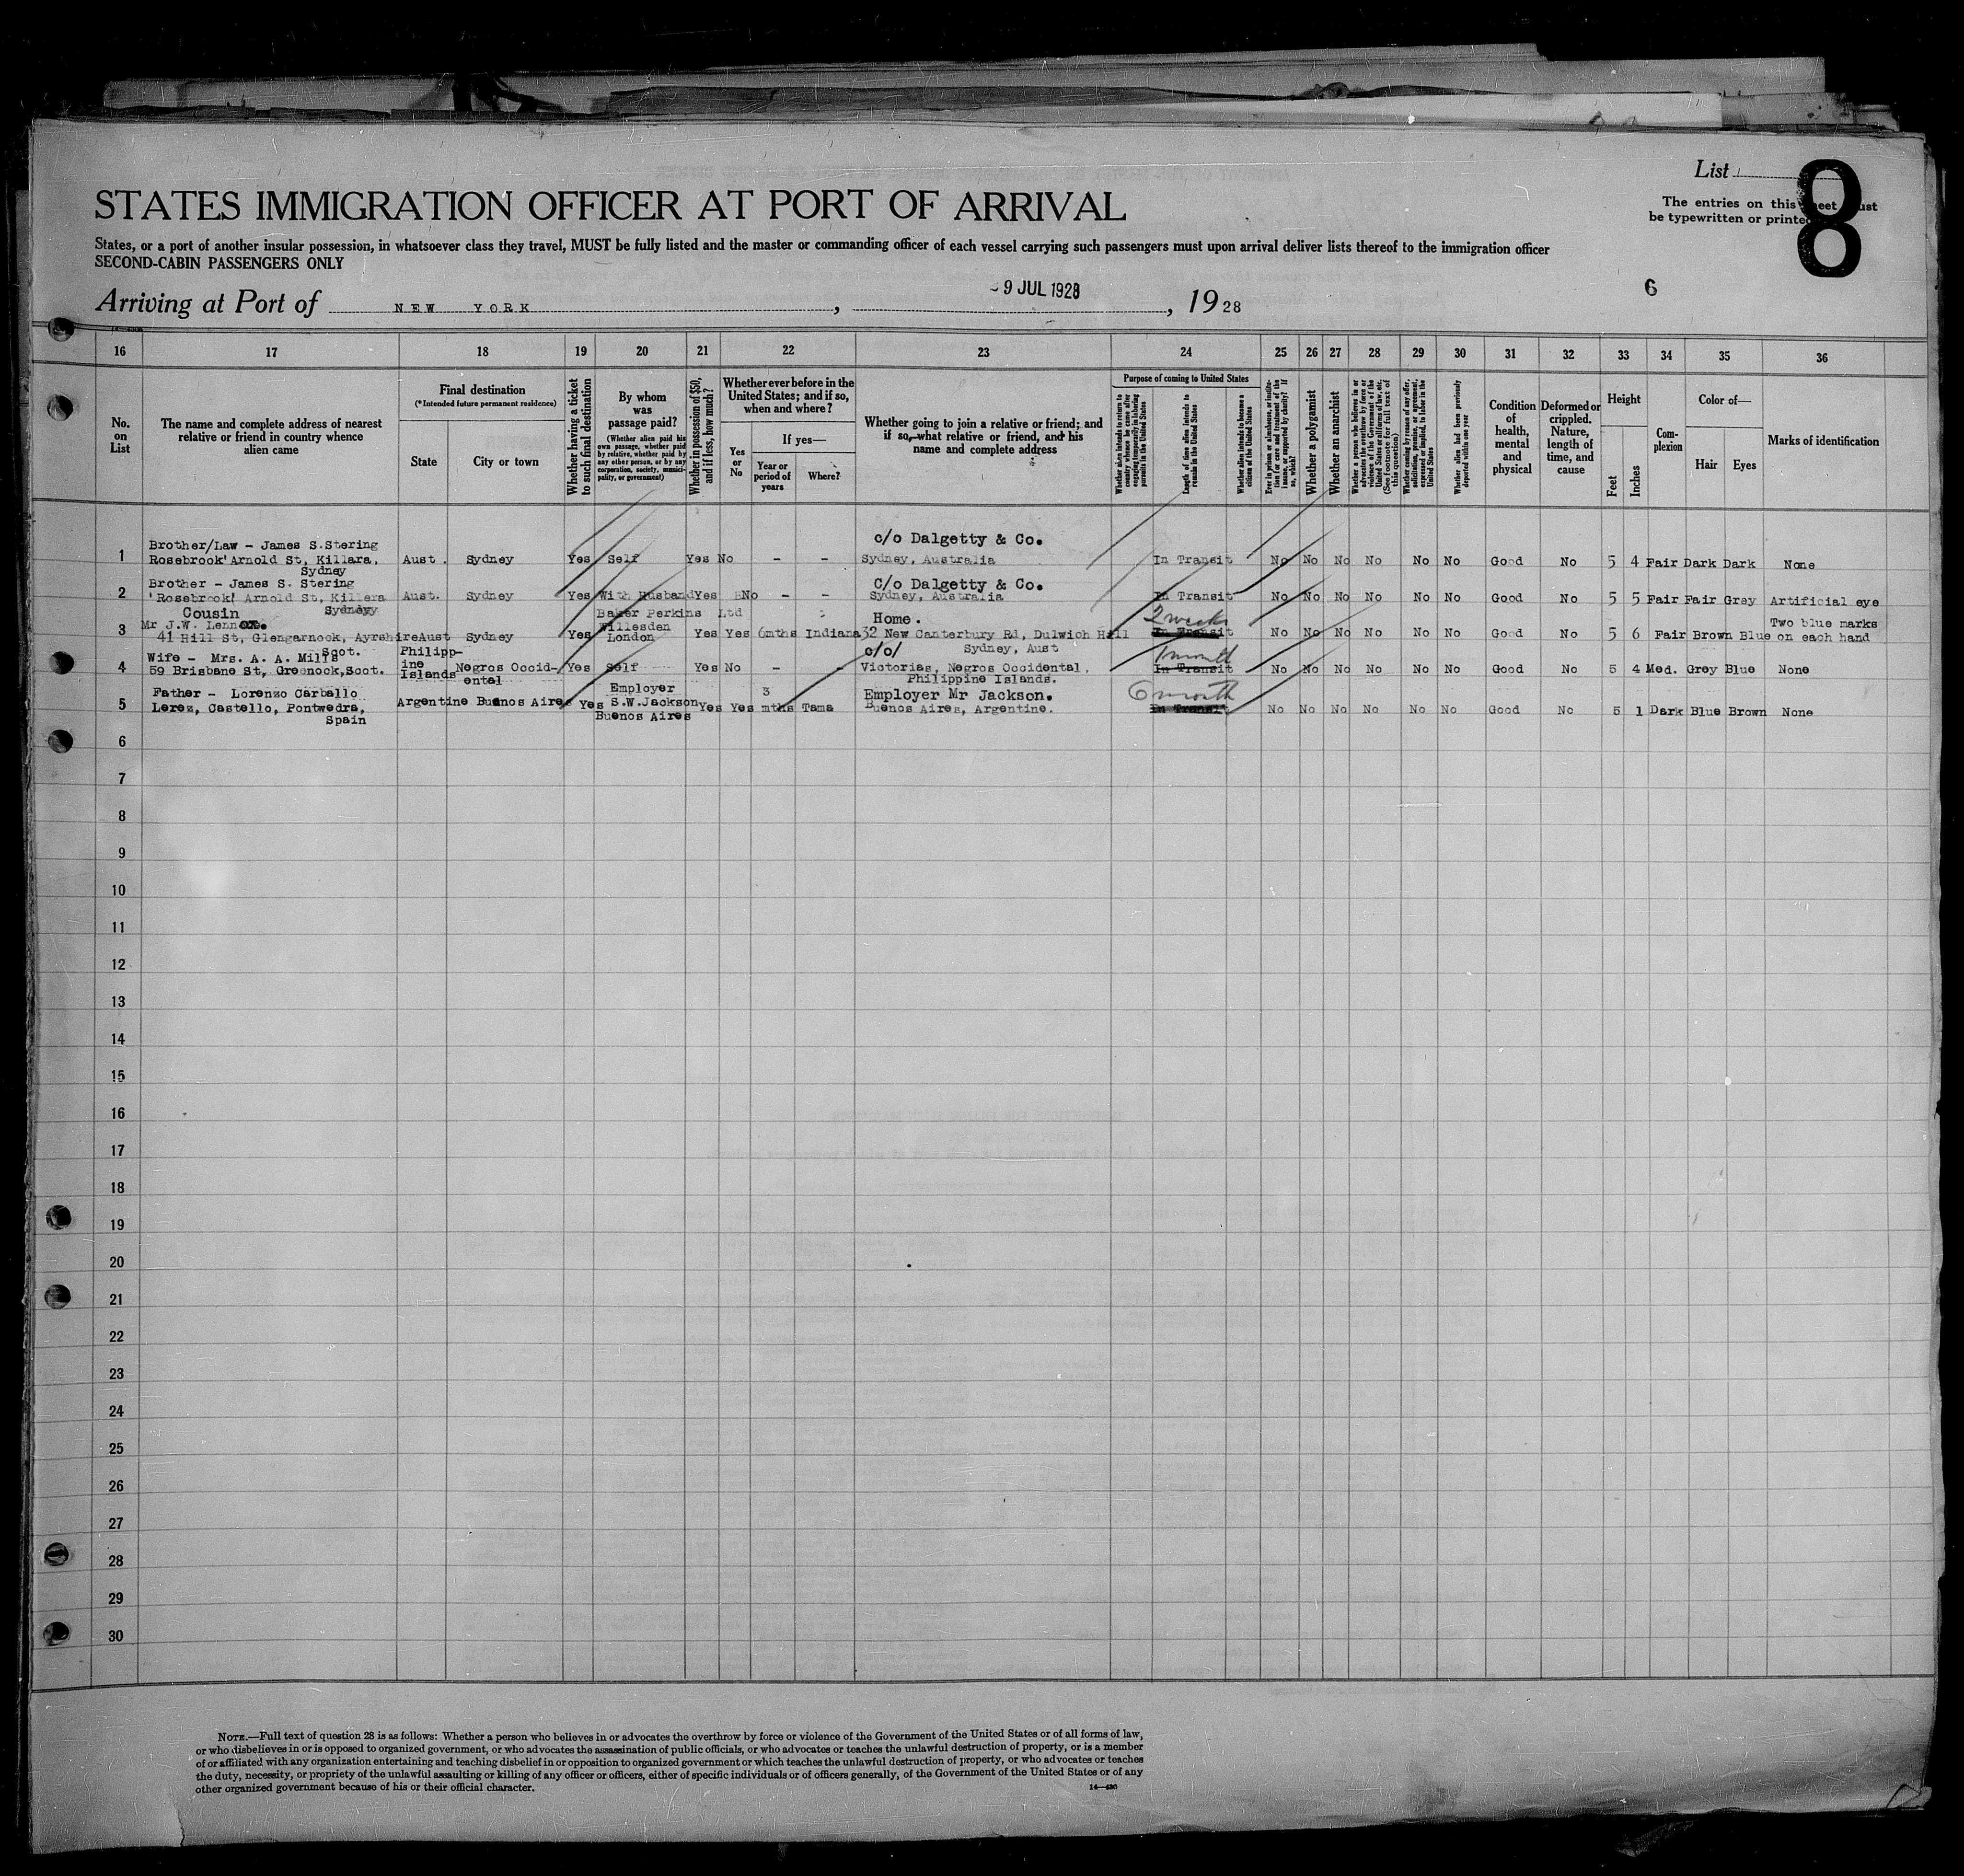 List 8
The entries on this sheet must
be typewritten or printed
STATES IMMIGRATION OFFICER AT PORT OF ARRIVAL
States, or a port of another insular possession, in whatsoever class they travel, MUST be fully listed and the master or commanding officer of each vessel carrying such passengers must upon arrival deliver lists thereof to the immigration officer
SECOND-CABIN PASSENGERS ONLY
6
Arriving at Port of NEW YORK, 9 JUL 1928, 1928
16 17 18 19 20 21 22 23 24 25 26 27 28 29 30 31 32 33 34 35 36
No. on List
The name and complete address of nearest relative or friend in country whence alien came
Final destination
(*Intended future permanent residence)
State
City or town
Whether having a ticket to such final destination
By whom was passage paid?
(Whether alien paid his own passage, whether paid by relative, whether paid by any other person, or by any corporation, society, municipality, or government)
Whether in possession of $50, and if less, how much?
Whether ever before in the United States; and if so, when and where?
Yes or No
If yes—
Year or period of years
Where?
Whether going to join a relative or friend; and if so, what relative or friend, and his name and complete address
Purpose of coming to United States
Whether alien intends to return to country whence he came after engaging temporarily in laboring pursuits in the United States
Length of time alien intends to remain in the United States
Whether alien intends to become a citizen of the United States
Ever in prison or almshouse, or institution for care and treatment of the insane, or supported by charity? If so, which?
Whether a polygamist
Whether an anarchist
Whether a person who believes in or advocates the overthrow by force or violence of the Government of the United States or all forms of law, etc. (See footnote for full text of this question)
Whether coming by reason of any offer, solicitation, promise, or agreement, expressed or implied, to labor in the United States
Whether alien had been previously deported within one year
Condition of health, mental and physical
Deformed or crippled. Nature, length of time, and cause
Height
Feet
Inches
Complexion
Color of—
Hair
Eyes
Marks of identification
1 Brother/Law - James S.Stering
Rosebrook' Arnold St, Killara,
Sydney
Aust. Sydney Yes Self Yes No - - c/o Dalgetty & Co.
Sydney, Australia In Transit No No No No No No Good No 5 4 Fair Dark Dark None
2 Brother - James S. Stering
'Rosebrook' Arnold St, Killera
Sydney
Aust. Sydney Yes With Husband Yes No - - C/o Dalgetty & Co.
Sydney, Australia In Transit No No No No No No Good No 5 5 Fair Fair Grey Artificial eye
3 Cousin
Mr J.W. Lennox.
41 Hill St, Glengarnock, Ayrshire
Scot.
Aust Sydney Yes Baker Perkins Ltd
Willesden
London Yes Yes 6mths Indiana Home.
32 New Canterbury Rd, Dulwich Hill
Sydney, Aust 2 weeks In Transit No No No No No No Good No 5 6 Fair Brown Blue Two blue marks
on each hand
4 Wife - Mrs. A. A. Mills
59 Brisbane St, Greenock,Scot.
Philipp-
ine
Islands Negros Occid-
ental Yes Self Yes No - - c/o/
Victorias, Negros Occidental,
Philippine Islands. 1 month In Transit No No No No No No Good No 5 4 Med. Grey Blue None
5 Father - Lorenzo Carballo
Lerez, Castello, Pontwedra,
Spain
Argentine Buenos Aires Yes Employer
S.W.Jackson
Buenos Aires Yes Yes 3
mths Tama Employer Mr Jackson.
Buenos Aires, Argentine. 6 month In Transit No No No No No No Good No 5 1 Dark Blue Brown None
6
7
8
9
10
11
12
13
14
15
16
17
18
19
20
21
22
23
24
25
26
27
28
29
30
NOTE.—Full text of question 28 is as follows: Whether a person who believes in or advocates the overthrow by force or violence of the Government of the United States or of all forms of law,
or who disbelieves in or is opposed to organized government, or who advocates the assassination of public officials, or who advocates or teaches the unlawful destruction of property, or is a member
of or affiliated with any organization entertaining and teaching disbelief in or opposition to organized government or which teaches the unlawful destruction of property, or who advocates or teaches
the duty, necessity, or propriety of the unlawful assaulting or killing of any officer or officers, either of specific individuals or of officers generally, of the Government of the United States or of any
other organized government because of his or their official character.
14—430